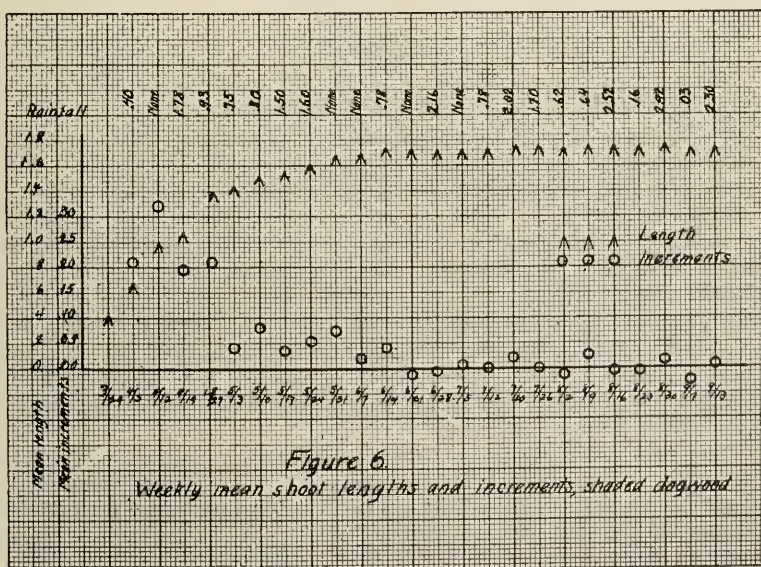 Rainfall .40 None 1.78 .93 .75 .80 1.50 1.60 None None .78 None 2.16 None .78 2.02 1.20 .62 .64 2.52 .16 2.42 .03 2.30
1.8
1.6
1.4
1.2 3.0
1.0 2.5
.8 2.0
.6 1.5
.4 1.0
.2 0.5
0 0.0
Length
Increments
3/29 4/5 4/12 4/19 4/27 5/3 5/10 5/17 5/24 5/31 6/7 6/14 6/21 6/28 7/5 7/12 7/20 7/26 8/2 8/9 8/16 8/23 8/30 9/7 9/13
Mean length
Mean increments
Figure 6.
Weekly mean shoot lengths and increments, shaded dogwood